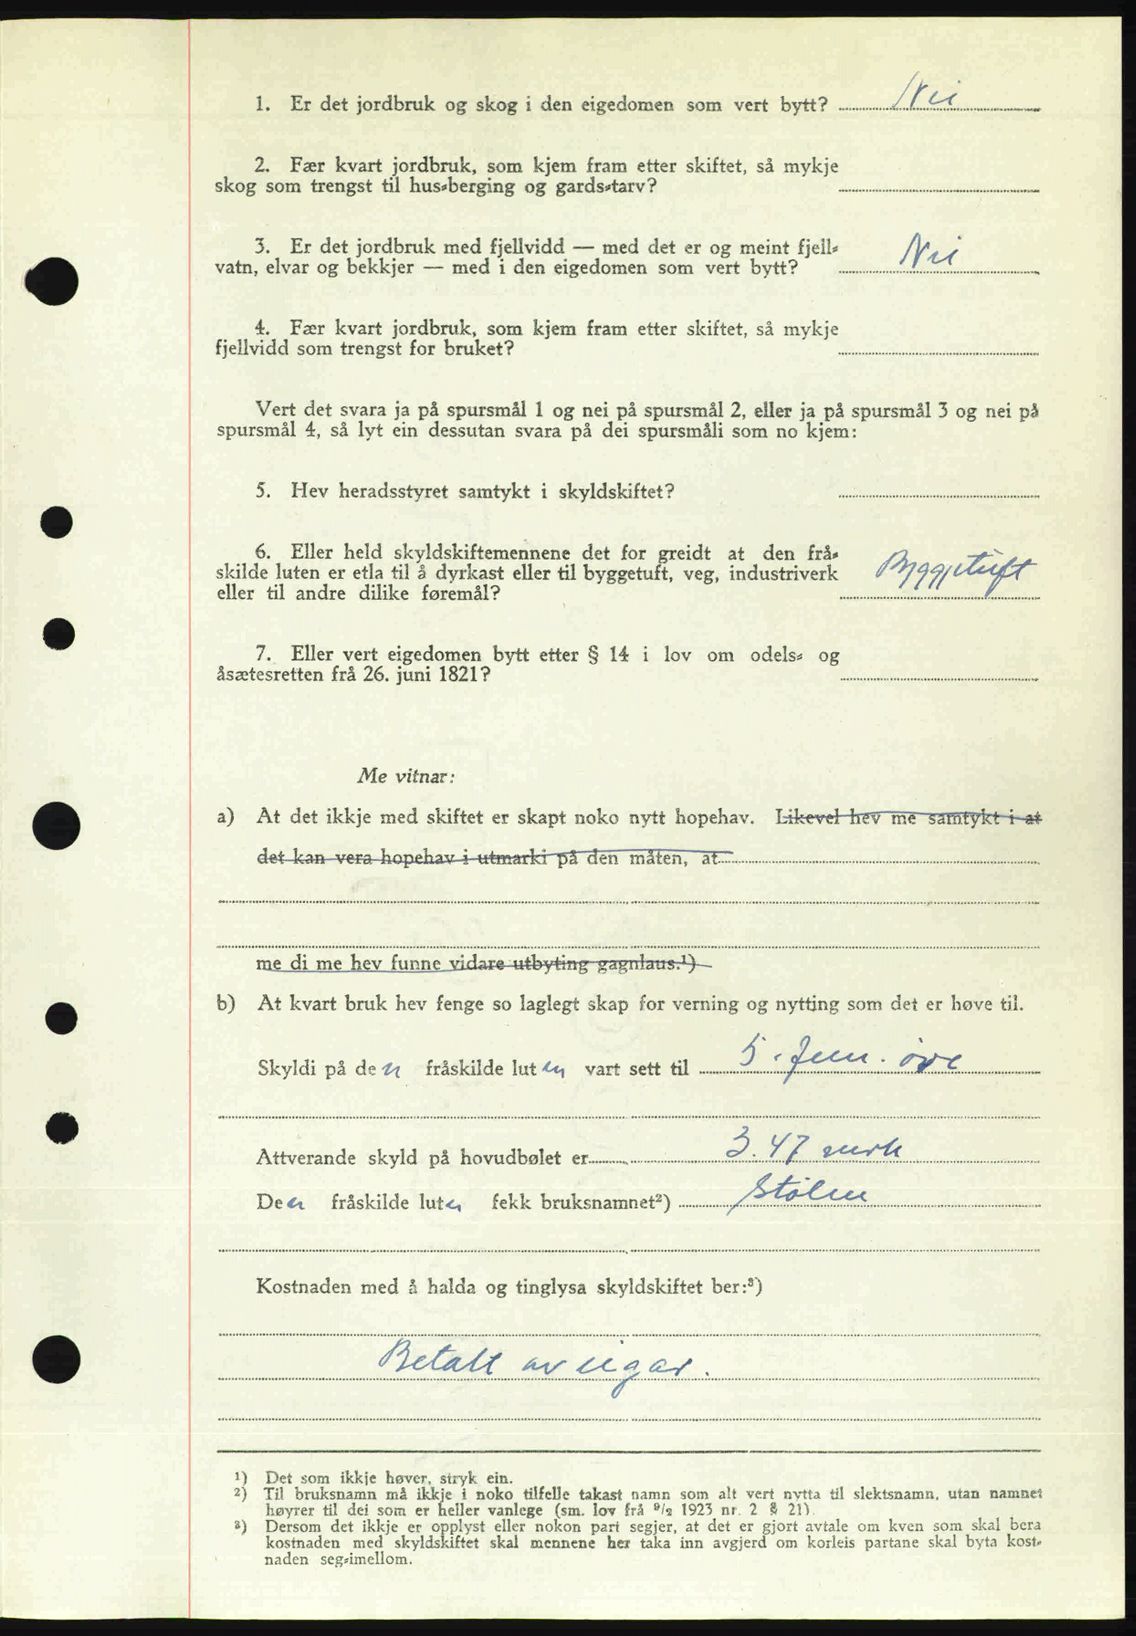 1. Er det jordbruk og skog i den eigedomen som vert bytt? Nei
2. Fær kvart jordbruk, som kjem fram etter skiftet, så mykje
skog som trengst til hus-berging og gards-tarv?
3. Er det jordbruk med fjellvidd — med det er og meint fjell-
vatn, elvar og bekkjer — med i den eigedomen som vert bytt? Nei
4. Fær kvart jordbruk, som kjem fram etter skiftet, så mykje
fjellvidd som trengst for bruket?
Vert det svara ja på spursmål 1 og nei på spursmål 2, eller ja på spursmål 3 og nei på
spursmål 4, så lyt ein dessutan svara på dei spursmåli som no kjem:
5. Hev heradsstyret samtykt i skyldskiftet?
6. Eller held skyldskiftemennene det for greidt at den frå-
skilde luten er etla til å dyrkast eller til byggetuft, veg, industriverk Byggjetuft
eller til andre dilike føremål?
7. Eller vert eigedomen bytt etter § 14 i lov om odels- og
åsætesretten frå 26. juni 1821?
Me vitnar:
a) At det ikkje med skiftet er skapt noko nytt hopehav. Likevel hev me samtykt i at
det kan vera hopehav i utmarki på den måten, at
me di me hev funne vidare utbyting gagnlaus.¹)
b) At kvart bruk hev fenge so laglegt skap for verning og nytting som det er høve til.
Skyldi på den fråskilde luten vart sett til 5 - fem - øre
Attverande skyld på hovudbølet er 3.47 mark
Den fråskilde luten fekk bruksnamnet²) Stølen
Kostnaden med å halda og tinglysa skyldskiftet ber:³)
Betalt av eigar.
¹) Det som ikkje høver, stryk ein.
²) Til bruksnamn må ikkje i noko tilfelle takast namn som alt vert nytta til slektsnamn, utan namnet
høyrer til dei som er heller vanlege (sm. lov frå ⁹/₂ 1923 nr. 2 § 21).
³) Dersom det ikkje er opplyst eller nokon part segjer, at det er gjort avtale om kven som skal bera
kostnaden med skyldskiftet skal mennene her taka inn avgjerd om korleis partane skal byta kost-
naden seg-imellom.